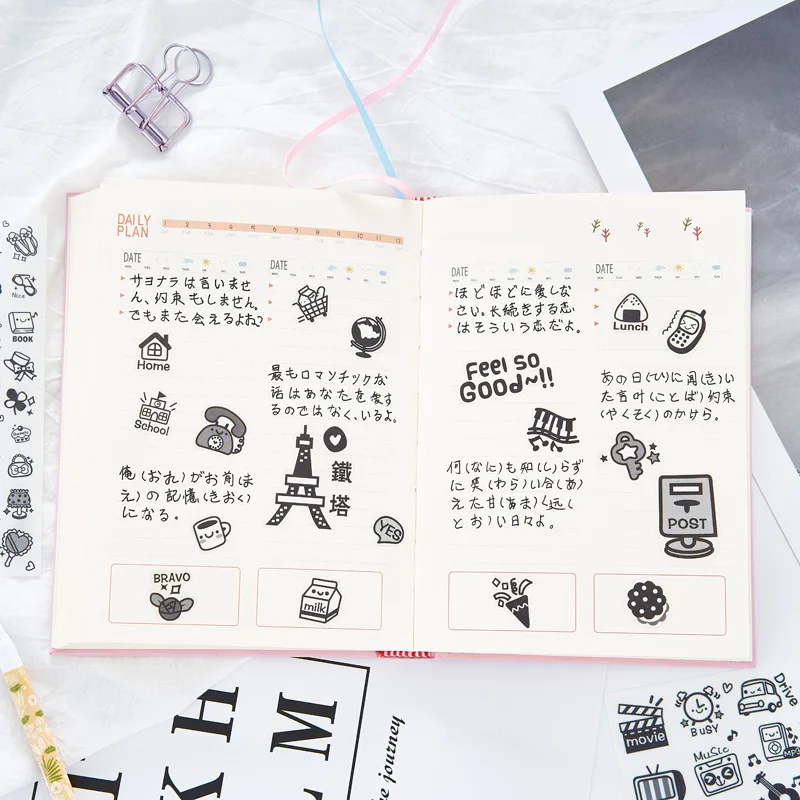 DAILY
PLAN
1 2 3 4 5 6 7 8 9 10 11 12
DATE
サヨナラは言いませ
ん、約束もしません。
でもまた会えるよね?
Home
School
俺(おれ)がお前(ま
え)の記憶(きおく)
になる。
BRAVO
DATE
最もロマンチックな
話はあなたを
るのではなく、いるよ。
鐵
塔
YES
milk
DATE
ほどほどに愛しな
さい。長続きする恋
はそういう恋だよ。
Feel SO
GOOD~!!
何(なに)も知(し)らず
に笑(わら)い合(あ)
えた甘(あま)く
とお)い日々よ。
DATE
Lunch
あの日(ひ)に聞(き)い
た言叶(ことば)約束
(やくそく)のかけら。
POST
Nice
BOOK
H
K
M
L
the journey
movie
BUSY
Drive
Music
MP3